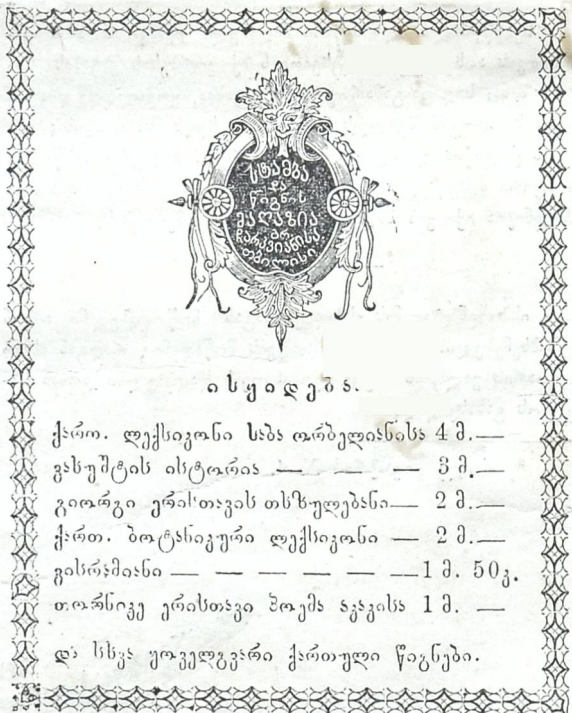 სტამბა
და
წიგნის
მაღაზია
გრ.
ჩარკვიანისა
თბილისი
ისყიდება.
ქართ. ლექსიკონი საბა ორბელიანისა 4 მ.—
ვახუშტის ისტორია — — — 3 მ.—
გიორგი ერისთავის თხზულებანი— 2 მ.—
ქართ. ბოტანიკური ლექსიკონი — 2 მ.—
ვისრამიანი — — — — — —1 მ. 50კ.
თორნიკე ერისთავი პოემა აკაკისა 1 მ. —
და სხვა ყოველგვარი ქართული წიგნები.